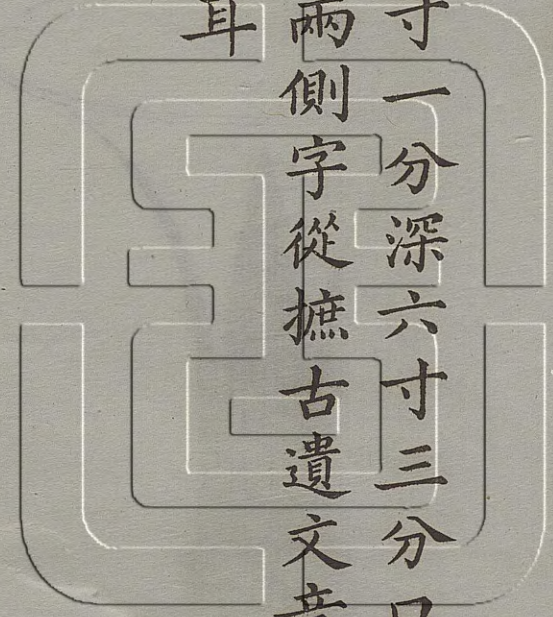 寸一分深六寸三分口
兩側字從摭古遺文音
耳